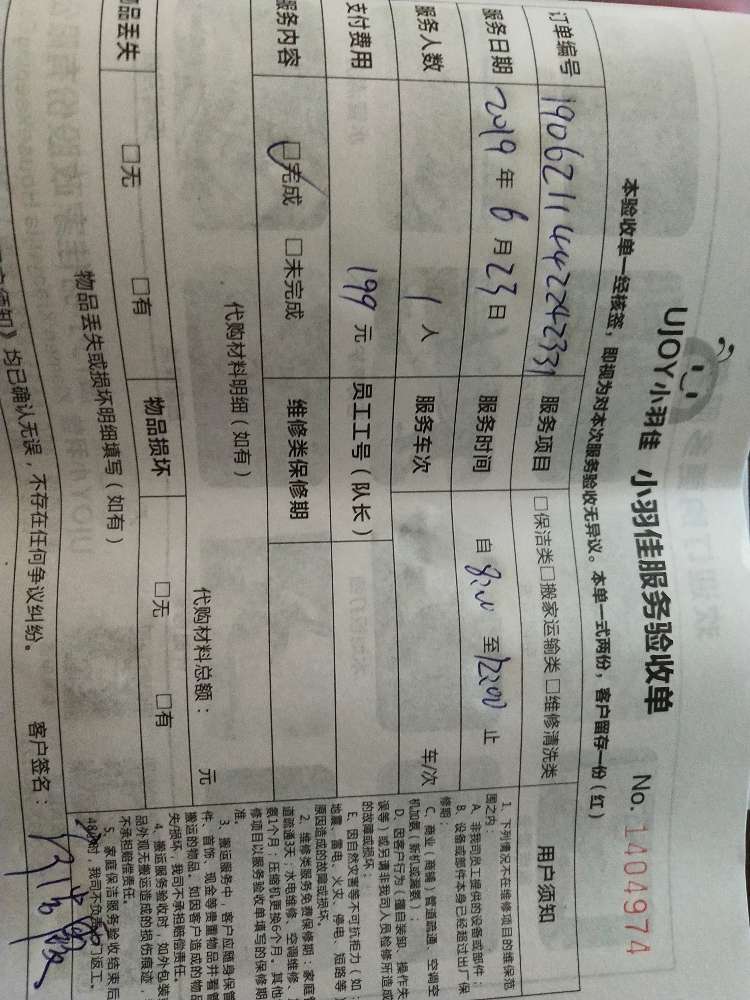 UJOY小羽佳 小羽佳服务验收单 No. 1404974
本验收单一经核签，即视为对本次服务验收无异议。本单一式两份，客户留存一份（红）
订单编号 190621144224233 服务项目 □保洁类□搬家运输类□维修清洗类
服务日期 2019年6月23日 服务时间 自 8:00 至 12:00 止
服务人数 1人 服务车次 车/次
支付费用 199元 员工工号（队长）
服务内容 □完成 □未完成 维修类保修期
代购材料明细（如有）
代购材料总额： 元
物品丢失 □无 □有 物品损坏 □无 □有
物品丢失或损坏明细填写（如有）
知》均已确认无误，不存在任何争议纠纷。 客户签名：
用户须知
1、下列情况不在维修项目的维保范
围之内：
A、非我司员工提供的设备或部件；
B、设备或部件本身已经超过出厂保
修期；
C、商业（商铺）管道疏通、空调空
机加氨（新机或漏氨）；
D、因客户行为（擅自装卸、操作失
误等）或另请非我司人员检修所造成
的故障或损坏；
E、因自然灾害等不可抗拒力（如：
地震、雷电、火灾、停电、短路等）
原因造成的故障或损坏。
2、维修类服务免费保修期：家庭管
道疏通3天；水电维修、空调维修、
氨1个月；压缩机更换6个月。其他
修项目以服务验收单填写的保修期
准。
3、搬运服务中，客户应随身保管
件、首饰、现金等贵重物品并看管
搬运的物品，如因客户造成的物品
失/损坏，我司不承担赔偿责任。
4、搬运服务验收时，如外包装
品外观无搬运造成的损伤痕迹，
不承担赔偿责任。
5、家庭保洁服务验收结束后
48小时，我司不负责上门返工。